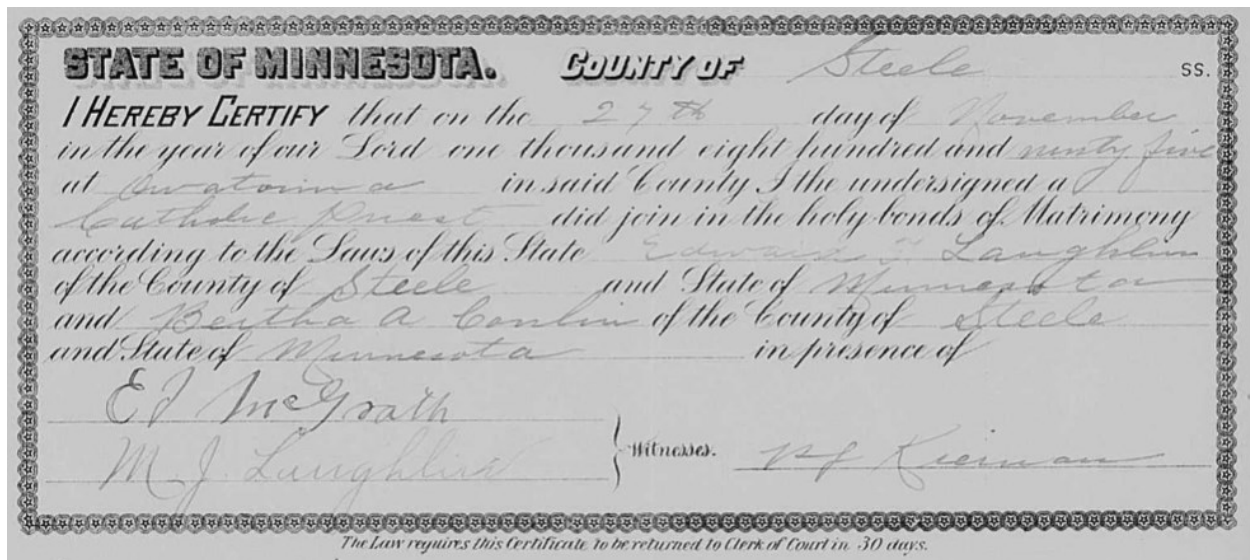 STATE OF MINNESOTA. COUNTY OF Steele SS.
I HEREBY CERTIFY that on the 27th day of November
in the year of our Lord one thousand eight hundred and ninty five
at Owatonna in said County I the undersigned a
Catholic Priest did join in the holy bonds of Matrimony
according to the Laws of this State Edward Laughlin
of the County of Steele and State of Minnesota
and Bertha A Conlin of the County of Steele
and State of Minnesota in presence of
McGrath
M. J. Laughlin
Witnesses. Kiernan
The Law requires this Certificate to be returned to Clerk of Court in 30 days.